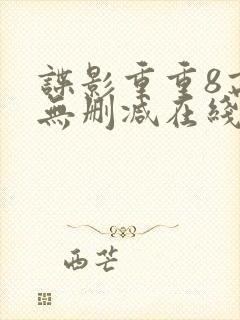 諜影重重8
無刪減在綫
西芒